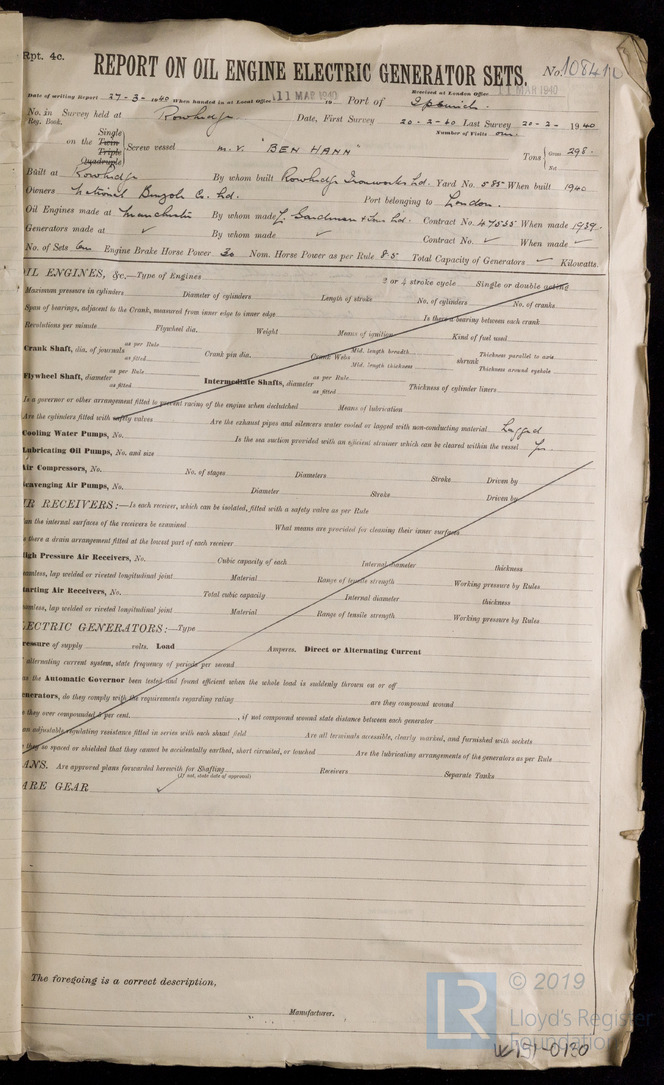 Rpt. 4c.
REPORT ON OIL ENGINE ELECTRIC GENERATOR SETS.
No. 10841
Received at London Office 11 MAR 1940
Date of writing Report 27-3-1940 When handed in at Local Office 11 MAR 1940 19 Port of Ipswich.
No. in Reg. Book. Survey held at Rowhedge Date, First Survey 20-2-40 Last Survey 20-2-1940
Number of Visits one.
on the Single Twin Triple Quadruple Screw vessel m.v. "BEN HANN" Tons Gross 298. Net
Built at Rowhedge By whom built Rowhedge Ironworks Ld. Yard No. 585 When built 1940
Owners National Benzole Co. Ld. Port belonging to London.
Oil Engines made at Manchester By whom made L. Gardner & Sons Ld. Contract No. 47535 When made 1939.
Generators made at ✓ By whom made ✓ Contract No. ✓ When made
No. of Sets One Engine Brake Horse Power 30 Nom. Horse Power as per Rule 8.5 Total Capacity of Generators Kilowatts.
OIL ENGINES, &c.—Type of Engines 2 or 4 stroke cycle Single or double acting
Maximum pressure in cylinders Diameter of cylinders Length of stroke No. of cylinders No. of cranks
Span of bearings, adjacent to the Crank, measured from inner edge to inner edge Is there a bearing between each crank
Revolutions per minute Flywheel dia. Weight Means of ignition Kind of fuel used
Crank Shaft, dia. of journals as per Rule as fitted Crank pin dia. Crank Webs Mid. length breadth Mid. length thickness shrunk Thickness parallel to axis Thickness around eyehole
Flywheel Shaft, diameter as per Rule as fitted Intermediate Shafts, diameter as per Rule as fitted Thickness of cylinder liners
Is a governor or other arrangement fitted to prevent racing of the engine when declutched Means of lubrication
Are the cylinders fitted with safety valves Are the exhaust pipes and silencers water cooled or lagged with non-conducting material Lagged
Cooling Water Pumps, No. Is the sea suction provided with an efficient strainer which can be cleared within the vessel Yes
Lubricating Oil Pumps, No. and size
Air Compressors, No. No. of stages Diameters Stroke Driven by
Scavenging Air Pumps, No. Diameter Stroke Driven by
IR RECEIVERS:—Is each receiver, which can be isolated, fitted with a safety valve as per Rule
an the internal surfaces of the receivers be examined What means are provided for cleaning their inner surfaces
s there a drain arrangement fitted at the lowest part of each receiver
High Pressure Air Receivers, No. Cubic capacity of each Internal diameter thickness
eamless, lap welded or riveted longitudinal joint Material Range of tensile strength Working pressure by Rules
tarting Air Receivers, No. Total cubic capacity Internal diameter thickness
eamless, lap welded or riveted longitudinal joint Material Range of tensile strength Working pressure by Rules
ECTRIC GENERATORS:—Type
ressure of supply volts. Load Amperes. Direct or Alternating Current
alternating current system, state frequency of periods per second
as the Automatic Governor been tested and found efficient when the whole load is suddenly thrown on or off
enerators, do they comply with the requirements regarding rating are they compound wound
e they over compounded 5 per cent. , if not compound wound state distance between each generator
an adjustable regulating resistance fitted in series with each shunt field Are all terminals accessible, clearly marked, and furnished with sockets
e they so spaced or shielded that they cannot be accidentally earthed, short circuited, or touched Are the lubricating arrangements of the generators as per Rule
ANS. Are approved plans forwarded herewith for Shafting Receivers Separate Tanks
(If not, state date of approval)
ARE GEAR ✓
The foregoing is a correct description,
Manufacturer.
LR
© 2019
Lloyd's Register
Foundation
W191-0130